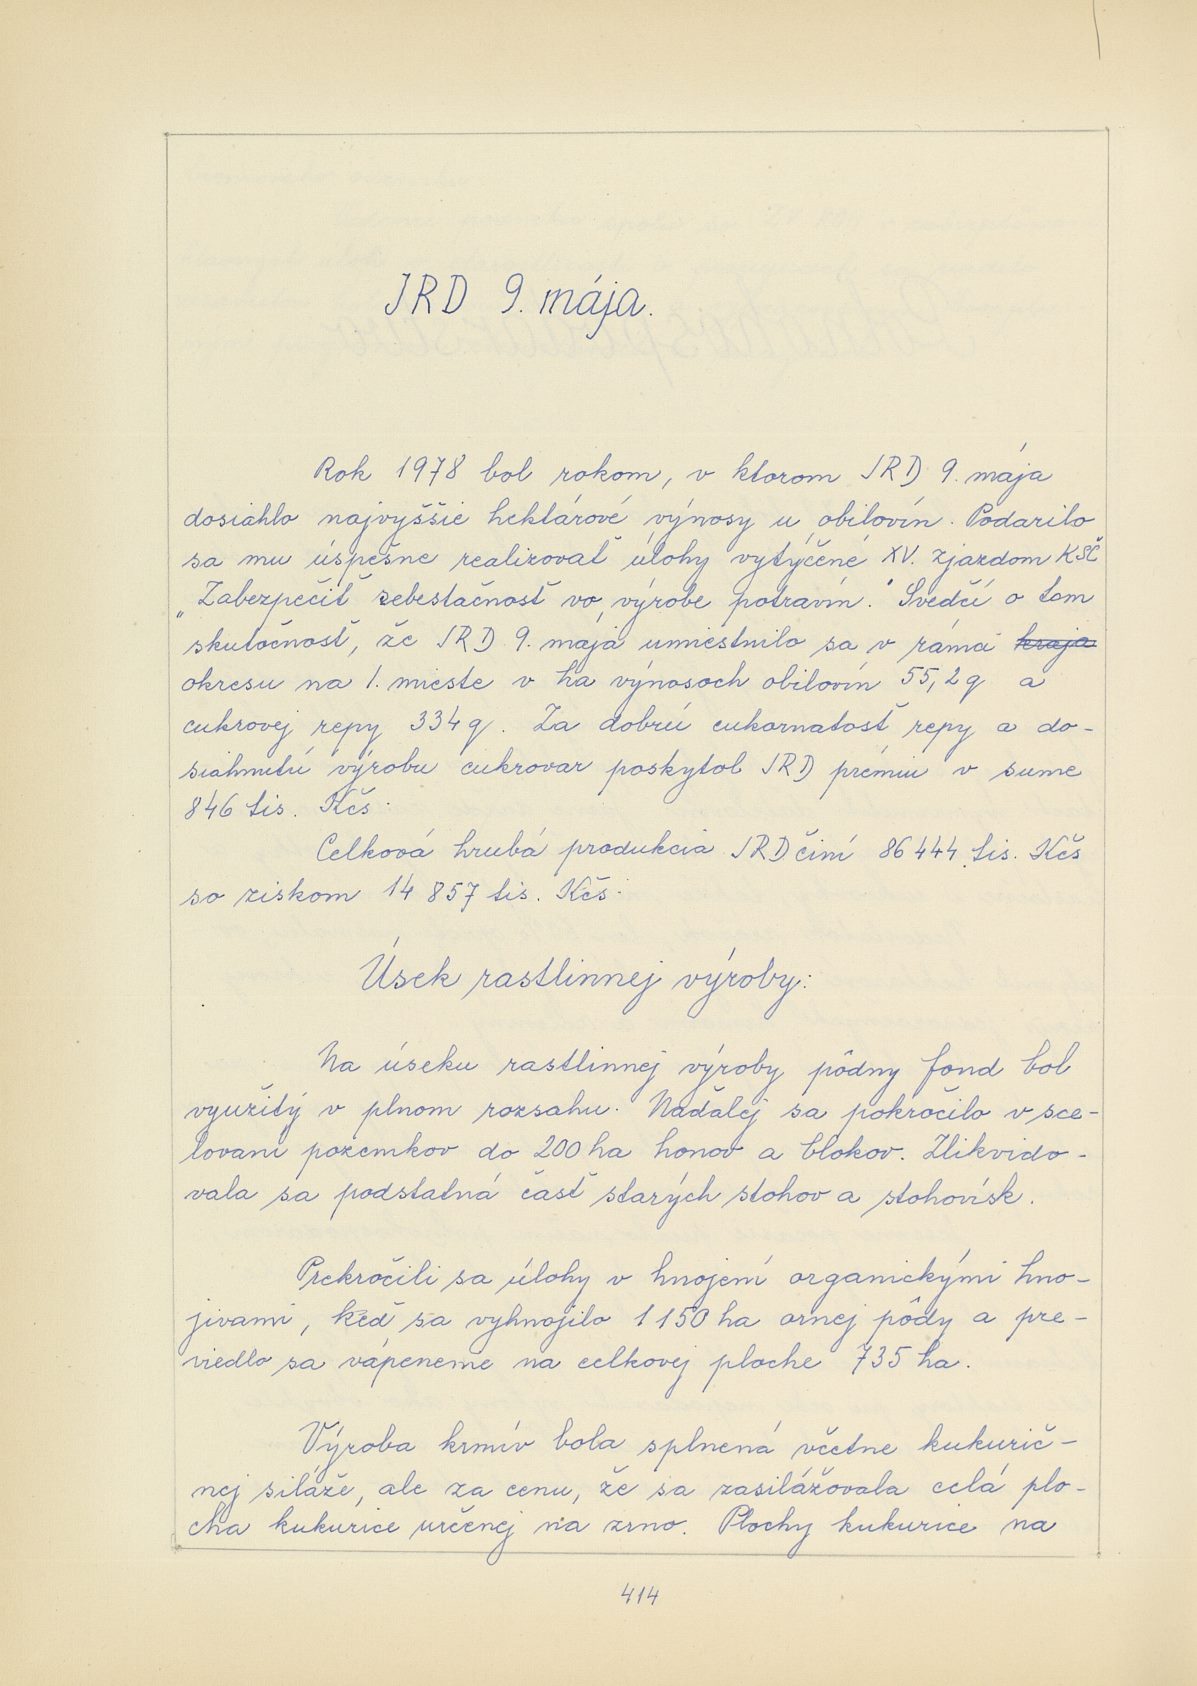 JRD 9. mája.
Rok 1978 bol rokom, v ktorom JRD 9. mája
dosiahlo najvyššie hektárové výnosy u obilovín. Podarilo
sa mu úspešne realizovať úlohy vytýčené XV. zjazdom KSČ
„Zabezpečiť sebestačnosť vo výrobe potravín." Svedčí o tom
skutočnosť, že JRD 9. mája umiestnilo sa v rámci kraja
okresu na 1. mieste v ha výnosoch obilovín 55,2 q a
cukrovej repy 334 q. Za dobrú cukornatosť repy a do-
siahnutú výrobu cukrovar poskytol JRD prémiu v sume
846 tis. Kčs.
Celková hrubá produkcia JRD činí 86 444 tis. Kčs
so ziskom 14 857 tis. Kčs.
Úsek rastlinnej výroby:
Na úseku rastlinnej výroby pôdny fond bol
využitý v plnom rozsahu. Naďalej sa pokročilo v sce-
lovaní pozemkov do 200 ha honov a blokov. Zlikvido-
vala sa podstatná časť starých stohov a stohovísk.
Prekročili sa úlohy v hnojení organickými hno-
jivami, keď sa vyhnojilo 1 150 ha ornej pôdy a pre-
viedlo sa vápenenie na celkovej ploche 735 ha.
Výroba krmív bola splnená včetne kukurič-
nej siláže, ale za cenu, že sa zasilážovala celá plo-
cha kukurice určenej na zrno. Plochy kukurice na
414